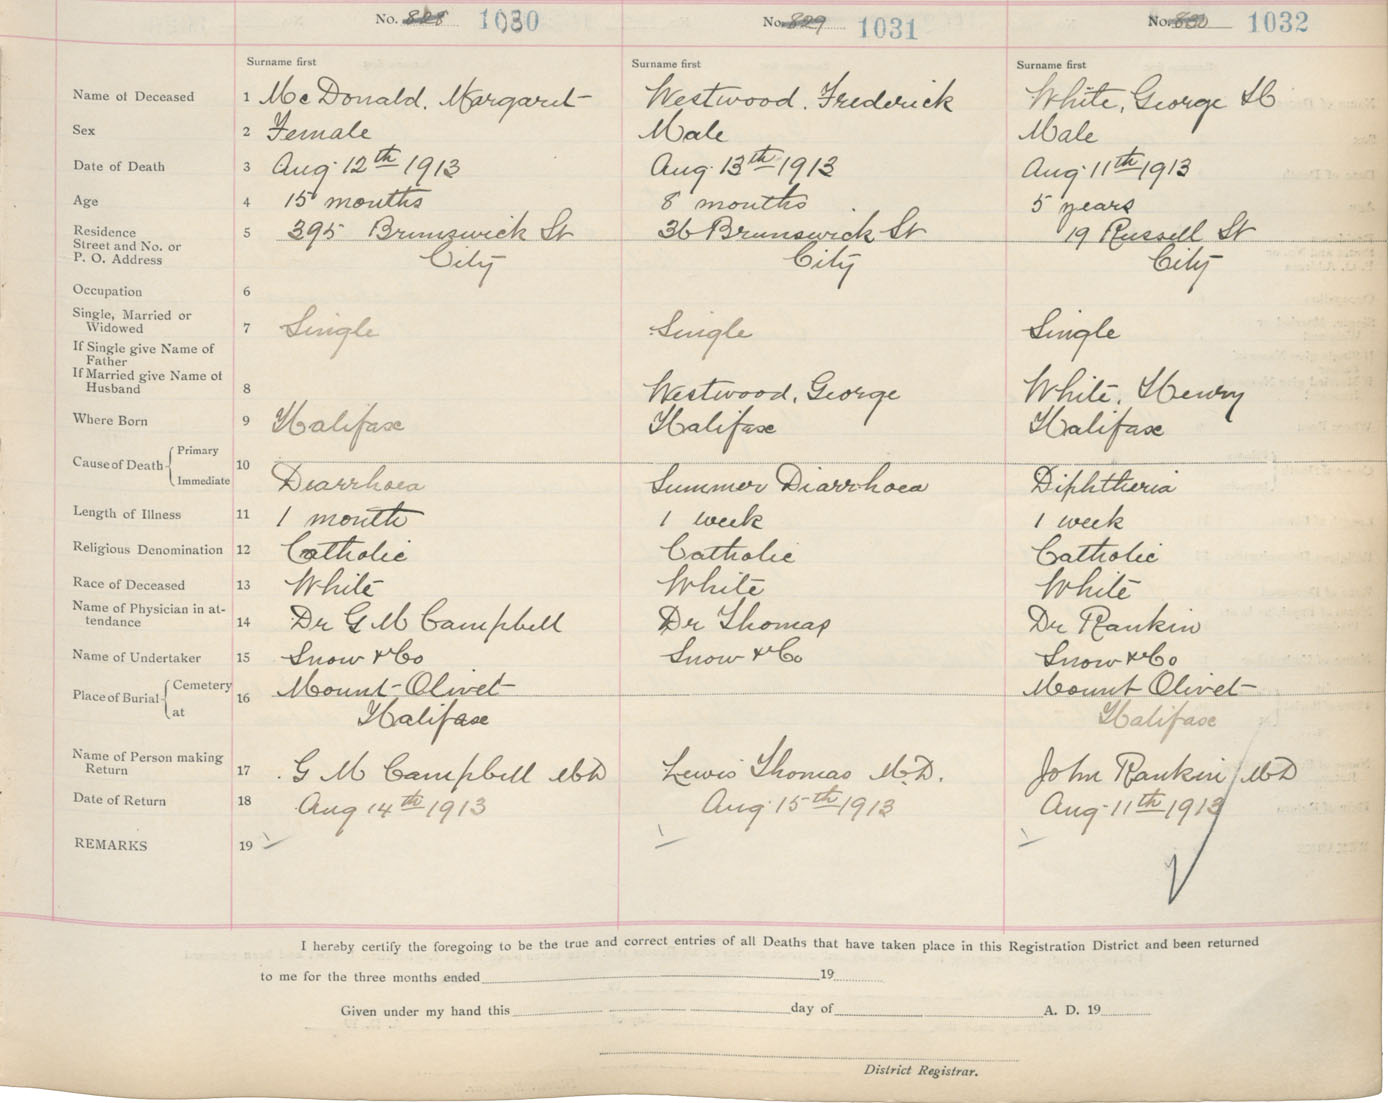 No. 828 1030 No. 829 1031 No. 830 1032
Surname first Surname first Surname first
Name of Deceased 1 McDonald, Margaret Westwood, Frederick White, George H
Sex 2 Female Male Male
Date of Death 3 Aug 12th 1913 Aug 13th 1913 Aug 11th 1913
Age 4 15 months 8 months 5 years
Residence 5 395 Brunswick St 36 Brunswick St 19 Russell St
Street and No. or
P. O. Address City City City
Occupation 6
Single, Married or
Widowed 7 Single Single Single
If Single give Name of
Father
If Married give Name of
Husband 8 Westwood, George White, Henry
Where Born 9 Halifax Halifax Halifax
Cause of Death Primary 10
Immediate Diarrhoea Summer Diarrhoea Diphtheria
Length of Illness 11 1 month 1 week 1 week
Religious Denomination 12 Catholic Catholic Catholic
Race of Deceased 13 White White White
Name of Physician in at-
tendance 14 Dr G M Campbell Dr Thomas Dr Rankin
Name of Undertaker 15 Snow & Co Snow & Co Snow & Co
Place of Burial Cemetery 16 Mount Olivet Mount Olivet
at Halifax Halifax
Name of Person making
Return 17 G M Campbell MD Lewis Thomas M.D. John Rankin MD
Date of Return 18 Aug 14th 1913 Aug 15th 1913 Aug 11th 1913
REMARKS 19
I hereby certify the foregoing to be the true and correct entries of all Deaths that have taken place in this Registration District and been returned
to me for the three months ended 19
Given under my hand this day of A. D. 19
District Registrar.